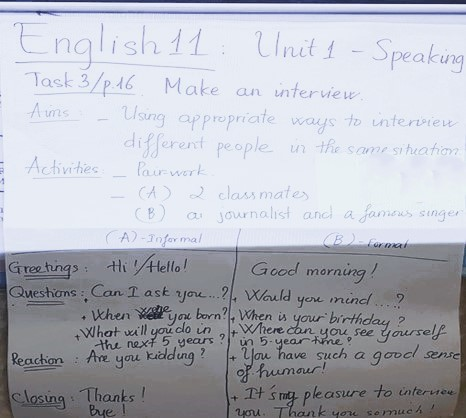 English 11 : Unit 1 - Speaking
Task 3/p.16 Make an interview.
Aims : - Using appropriate ways to interview
different people in the same situation
Activities : - Pair work.
- (A) 2 classmates
(B) a journalist and a famous singer
(A) - Informal (B) - Formal
Greetings : Hi! / Hello! Good morning!
Questions : + Can I ask you ...? + Would you mind ....?
+ When were you born? + When is your birthday?
+ What will you do in + Where can you see yourself
the next 5 years? in 5-year time?
Reaction : Are you kidding? + You have such a good sense
of humour!
Closing : Thanks! + It's my pleasure to interview
Bye! you. Thank you so much!